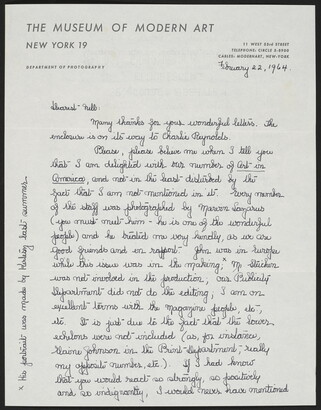 THE MUSEUM OF MODERN ART
NEW YORK 19
11 WEST 53rd STREET
TELEPHONE: CIRCLE 5-8900
CABLES: MODERNART, NEW-YORK
DEPARTMENT OF PHOTOGRAPHY
February 22, 1964.
Dearest Nell:
Many thanks for your wonderful letters. The
enclosure is on its way to Charlie Reynolds.
Please, please believe me when I tell you
that I am delighted with this number of Art in
America, and not in the least disturbed by the
fact that I am not mentioned in it. Every member
of the staff was photographed by Marvin Lazarus
(you must meet him - he is one of the wonderful
people) and he treated me very kindly, as we are
good friends and in rapport. John was in Europe
while this issue was in the making,ˣ Mr. Steichen
was not involved in the production, our Publicity
Department did not do the editing, I am on
excellent terms with the magazine people, etc.,
etc. It is just due to the fact that the lower
echelons were not included (as, for instance,
Elaine Johnson in the Print Department, really
my opposite number, etc.). If I had know
that you would react so strongly, so positively
and so indignantly, I would never have mentioned
x His portrait was made by Harling last summer